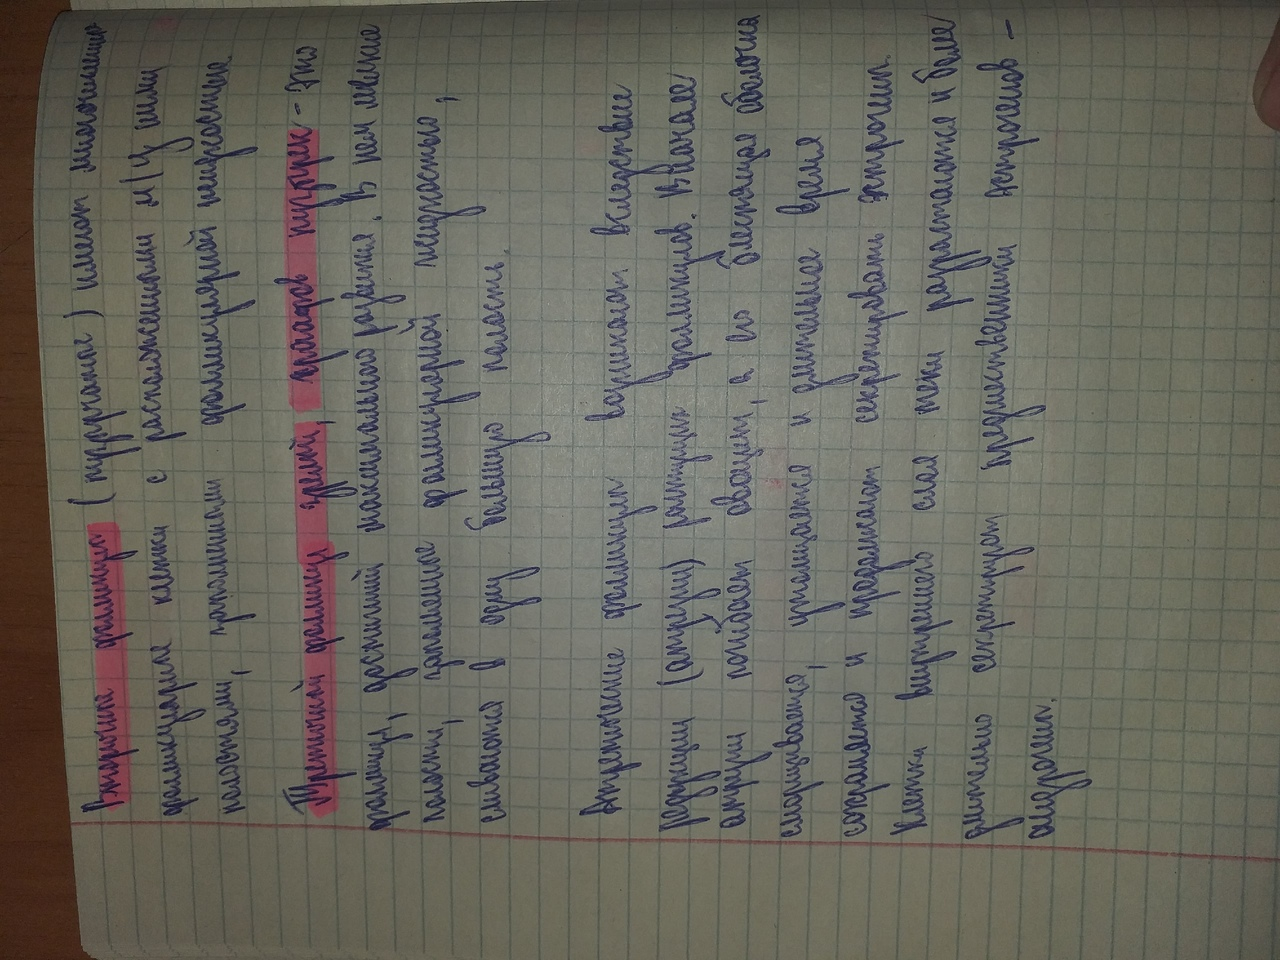 Вторичные фолликулы (третичные) имеют многослойные
фолликулярные клетки с расположенными м/у ними
полостями, заполненными фолликулярной жидкостью
Третичный фолликул зрелый, граафов пузырек - это
фолликул, достигший максимального развития. В нем мелкие
полости, заполненные фолликулярной жидкостью,
сливаются в одну большую полость.
Атретические фолликулы возникают вследствие
редукции (атрезии) растущих фолликулов. Вначале
атрезии погибает овоцит, а его блестящая оболочка
сморщивается, утолщается и длительное время
сохраняется и продолжает секретировать эстрогены.
Клетки внутреннего слоя теки разрастаются и более
длительно секретируют предшественники эстрогенов -
андрогены.